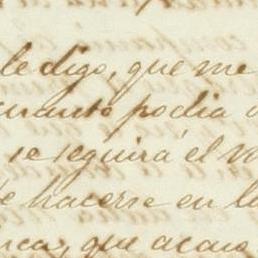 le digo, que me
cuanto podia
se seguirá el
de hacerse en l
que acaso